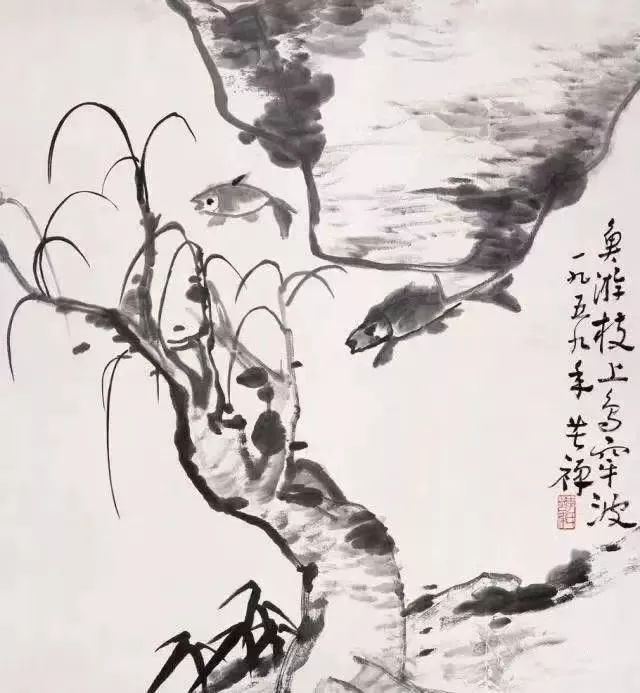 鱼游枝上鸟穿波
一九五九年 苦禅